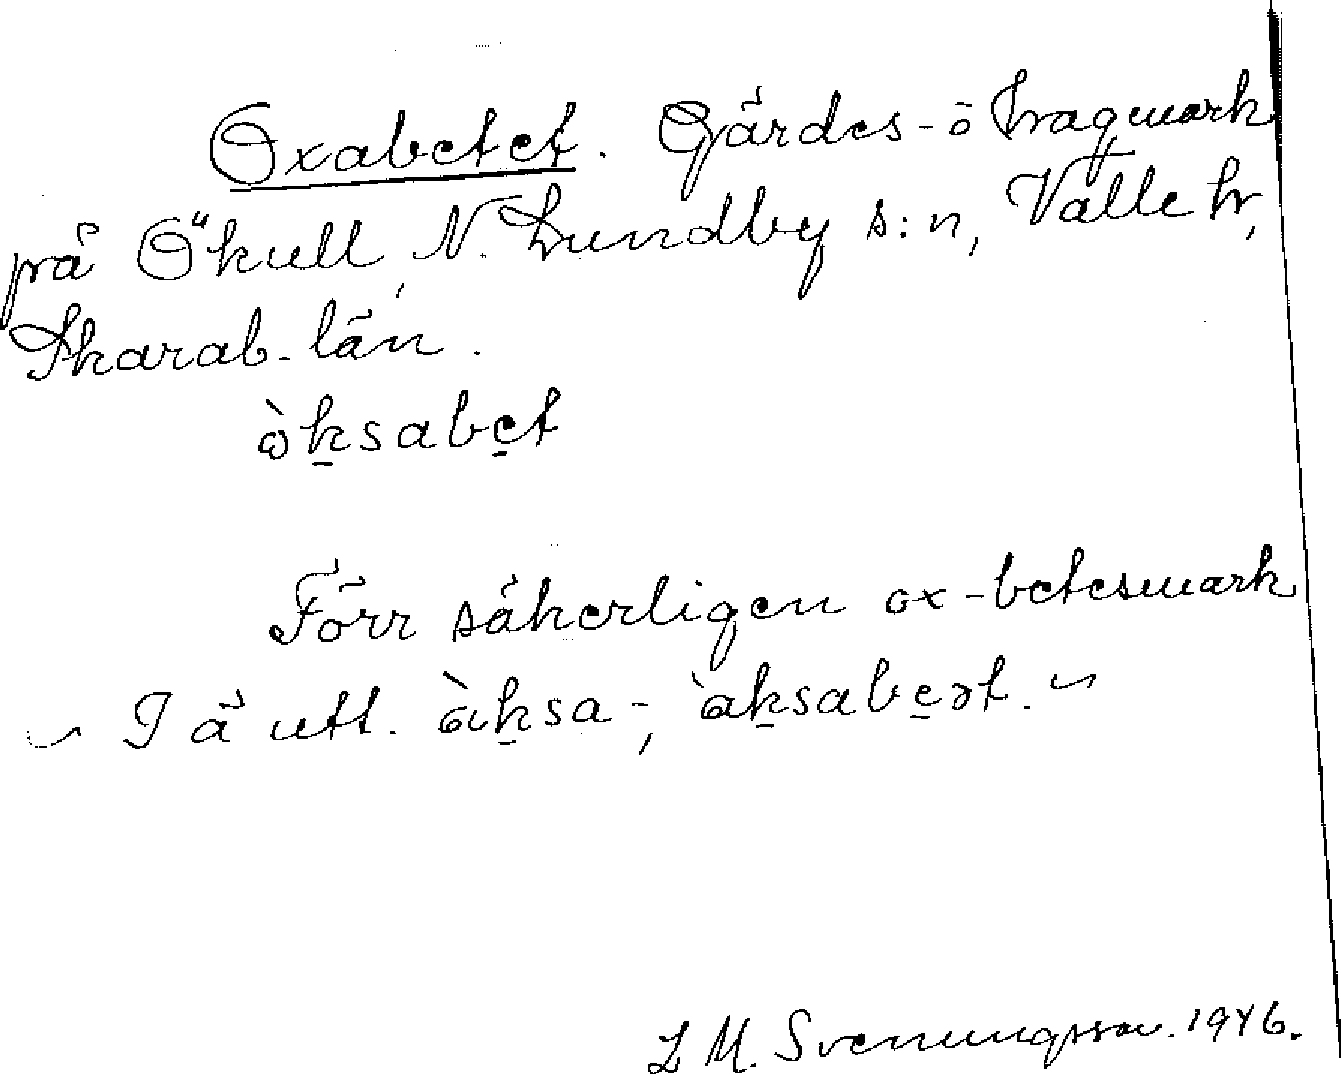 Oxabetet. Gärdes- o hagmark
på Ökull, N. Lundby s:n, Valle hr,
Skarab. län.
òksabet
Förr säkerligen ox-betesmark
~ I ä utt. àksa-, àksabeət. ~
L M. Svenungsson. 1946.